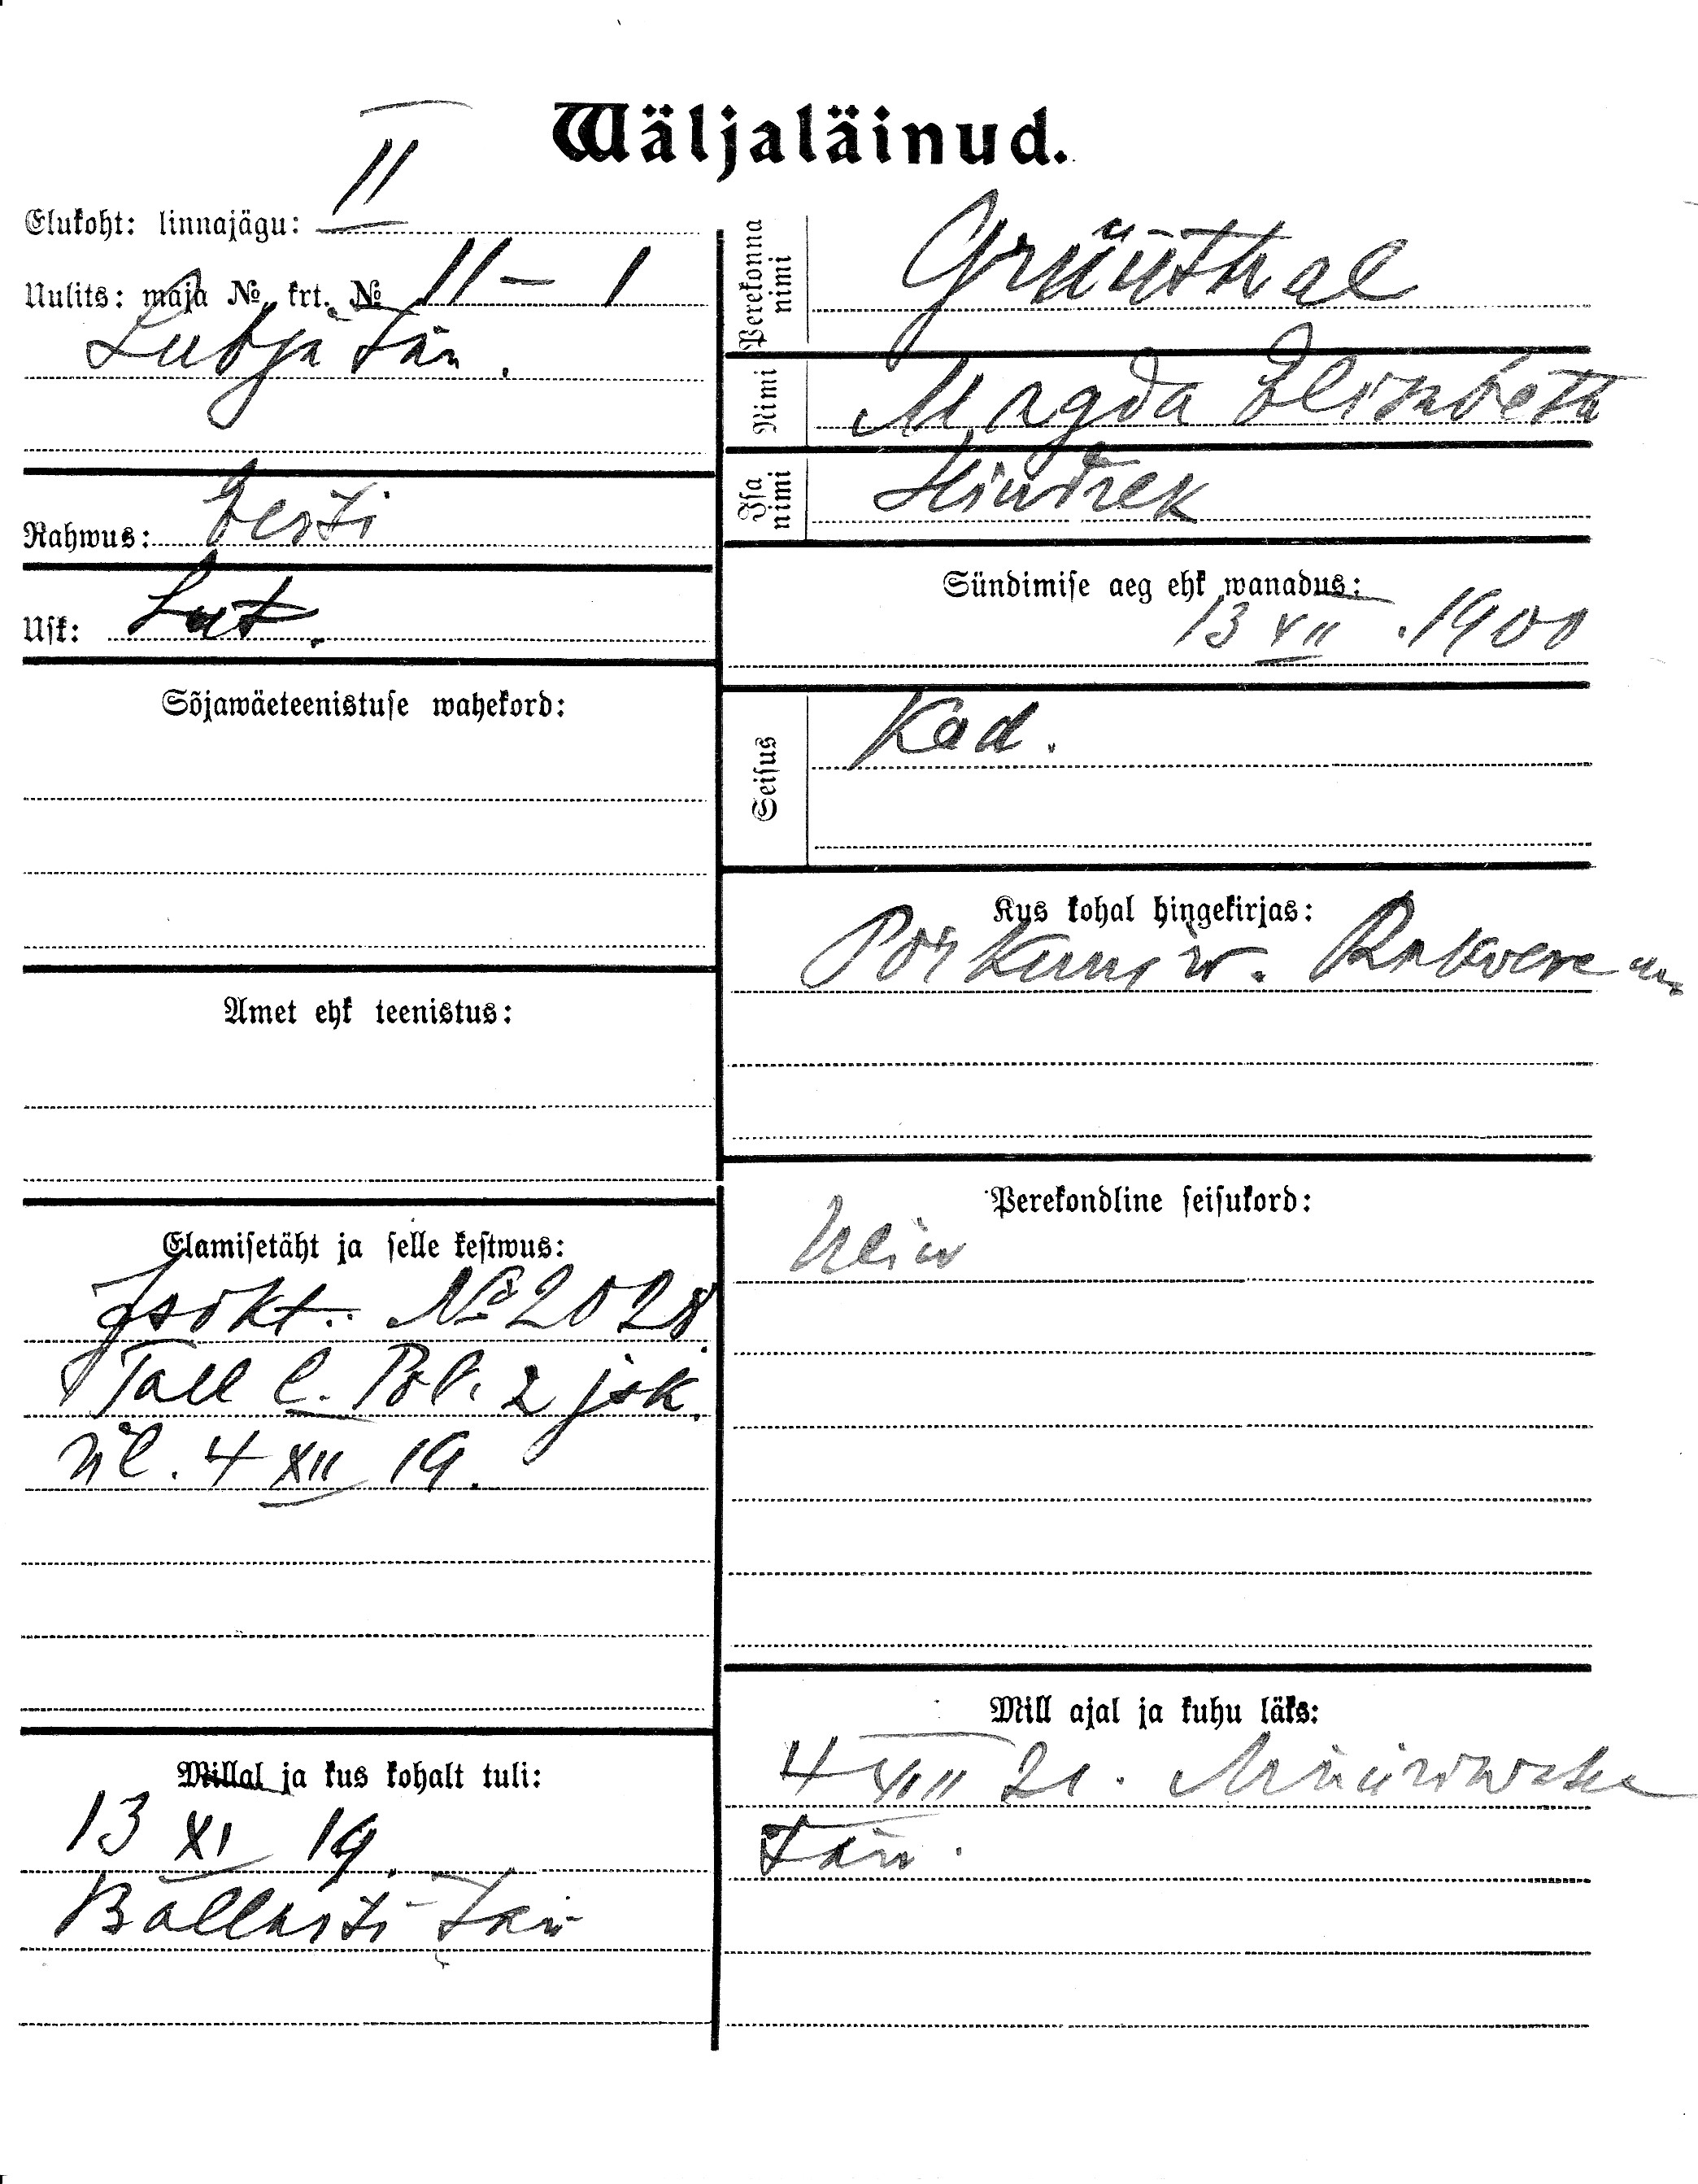 Wäljaläinud.
Elukoht: linnajägu: II
Uulits: maja № krt. № 11 – 1
Lubja tän.
Rahwus: Eesti
Usk: Lut.
Sõjawäeteenistuse wahekord:
Amet ehk teenistus:
Elamisetäht ja selle kestwus:
Isikt. № 2028
Tall l. Pol. 2 jsk.
4 XII 19.
Millal ja kus kohalt tuli:
13 XI 19.
Ballasti tän
Perekonna nimi
Grünthal
Nimi
Magda Elisabeth
Isa nimi
Hindrek
Sündimise aeg ehk wanadus:
13 XII . 1900
Seisus
Kad.
Kus kohal hingekirjas:
Porkuni w. Rakvere m
Perekondline seisukord:
Mill ajal ja kuhu läks:
4 VIII 21.
tän.